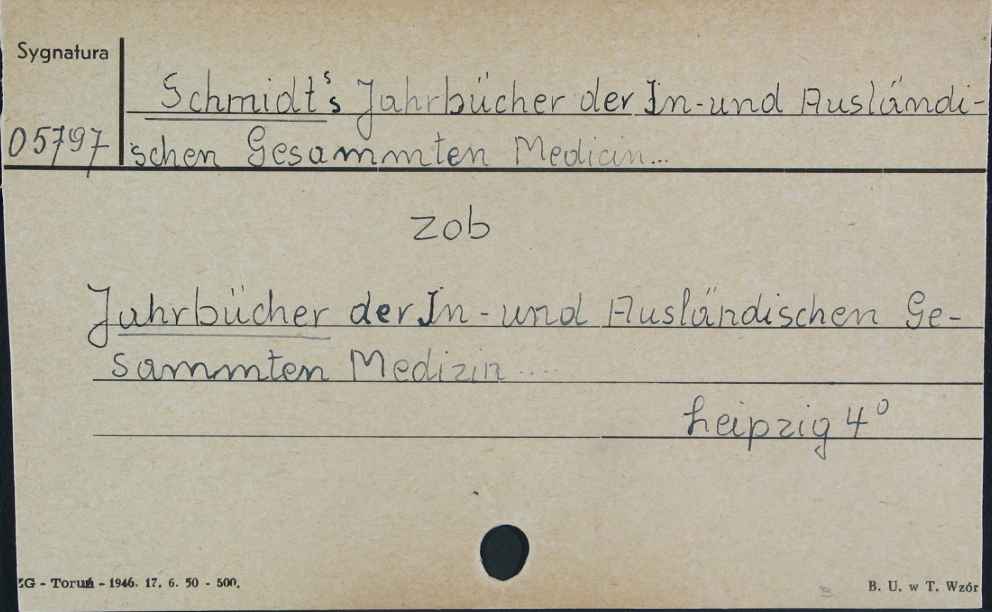 Sygnatura
Schmidt's Jahrbücher der In- und Ausländi-
05797
schen Gesammten Medicin...
zob
Jahrbücher der In- und Ausländischen Ge-
sammten Medizin ....
Leipzig 4°
ZG - Toruń - 1946. 17. 6. 50 - 500.
B. U. w T. Wzór